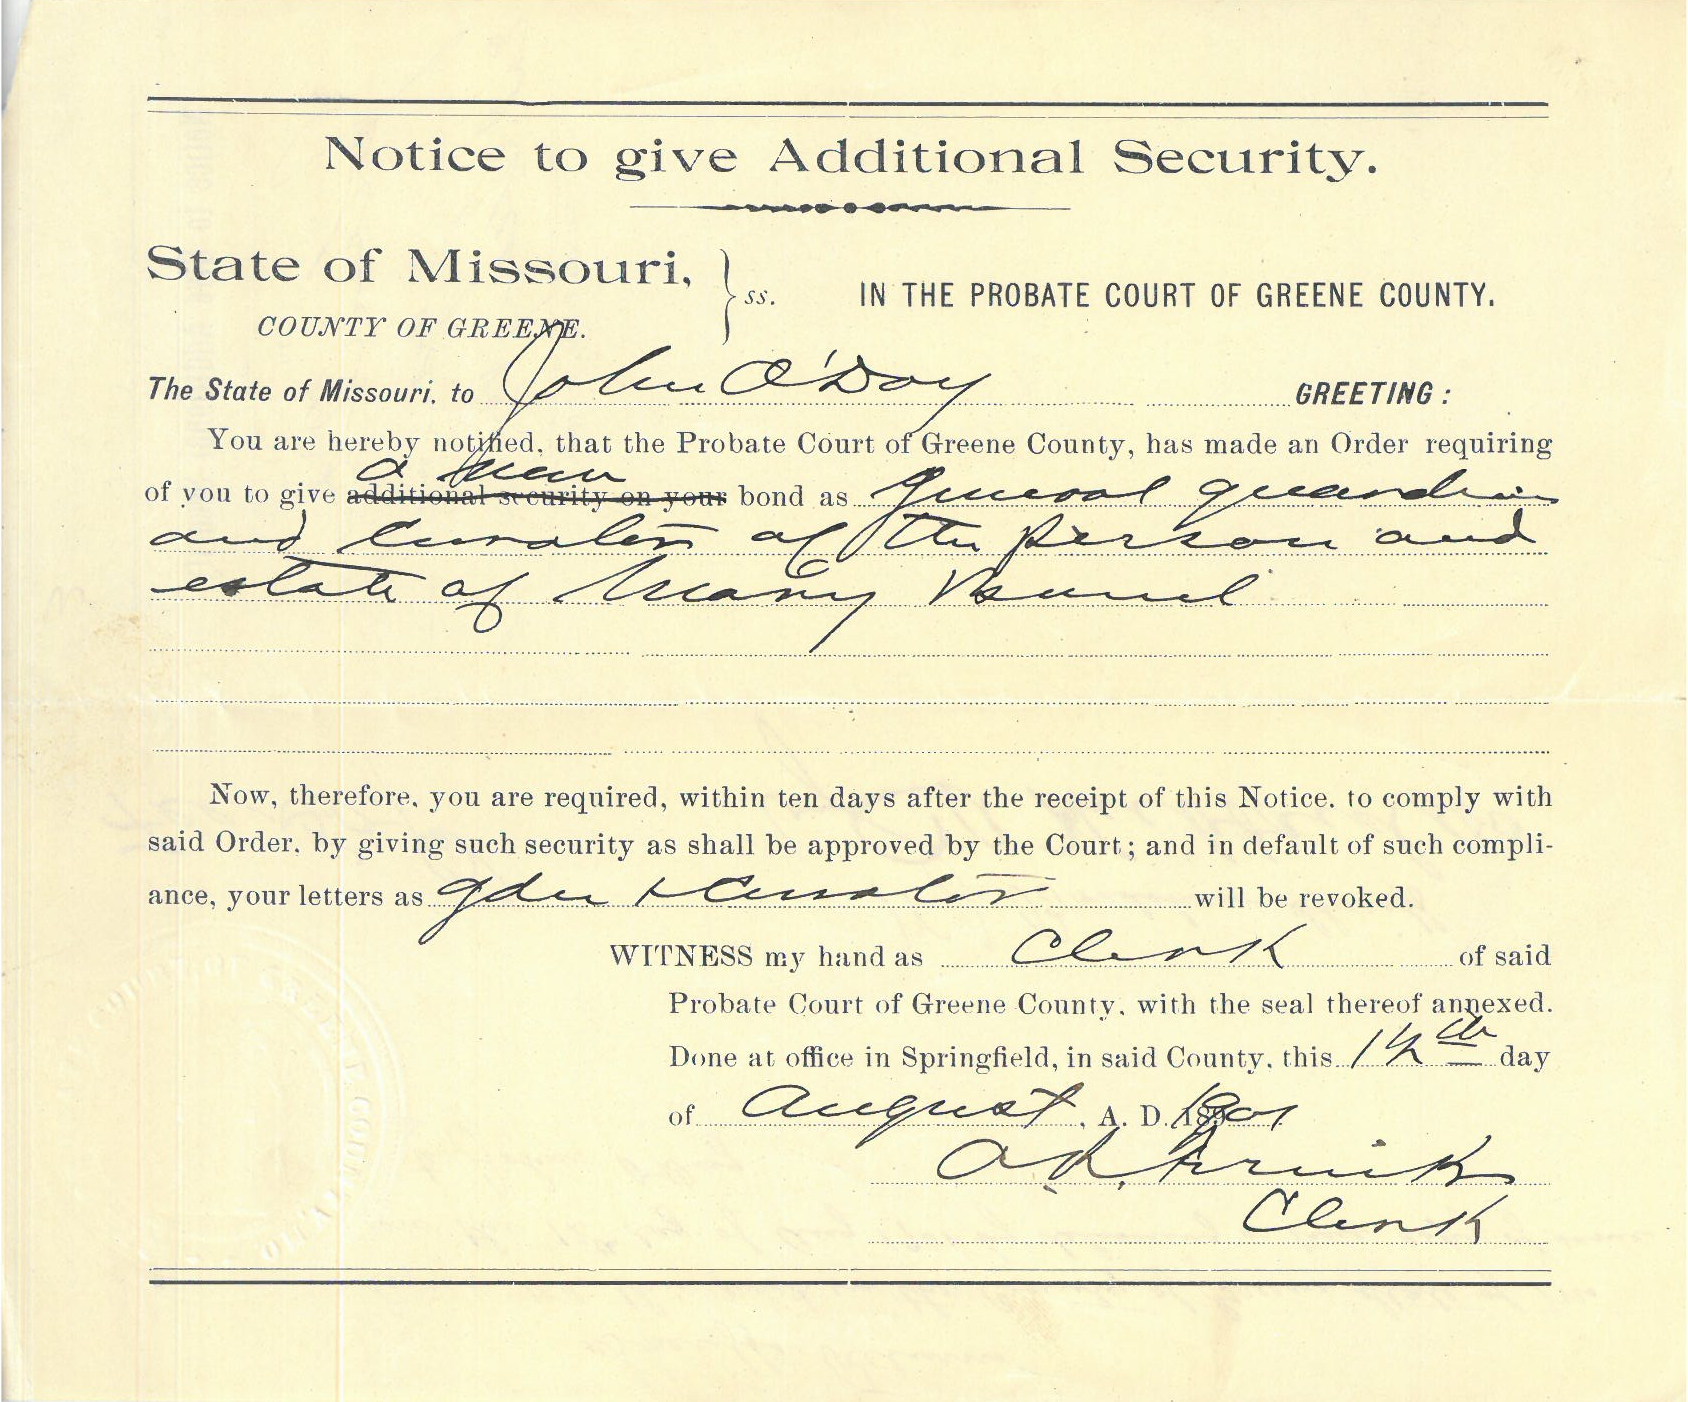 Notice to give Additional Security.
State of Missouri, } ss. IN THE PROBATE COURT OF GREENE COUNTY.
COUNTY OF GREENE.
The State of Missouri, to John O'Day GREETING:
You are hereby notified, that the Probate Court of Greene County, has made an Order requiring
a new
of you to give additional security on your bond as general guardian
and curator of the person and
estate of Mary
Now, therefore, you are required, within ten days after the receipt of this Notice, to comply with
said Order, by giving such security as shall be approved by the Court; and in default of such compli-
ance, your letters as gdn & Curator will be revoked.
WITNESS my hand as Clerk of said
Probate Court of Greene County, with the seal thereof annexed.
Done at office in Springfield, in said County, this day
of August, A. D. 1901
Clerk